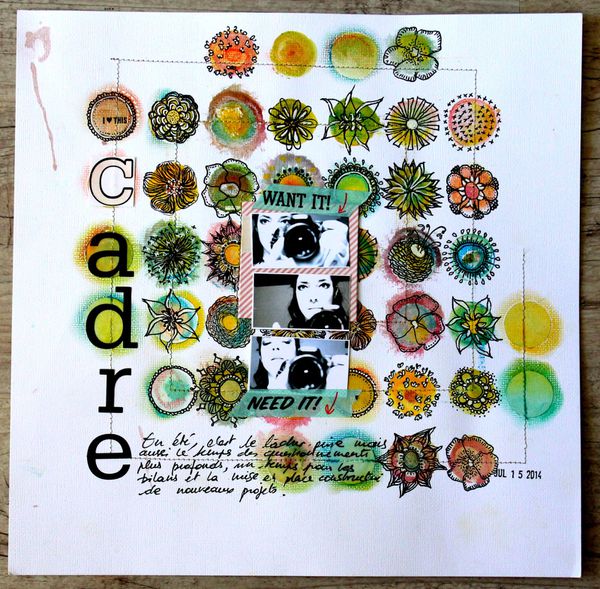 I ♥ THIS
cadre
WANT IT!
NEED IT!
En été, c'est le farniente mais
aussi le temps des questionnements
plus profonds, un temps pour les
bilans et la mise en place constructive
de nouveaux projets.
JUL 15 2014